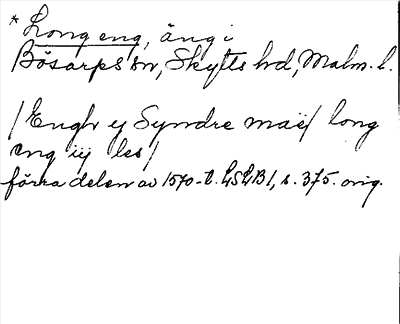 * Long eng, äng i
Bösarps sn, Skytts hd, Malm. l.
/Engh ij Syndre maë/ long
eng iij les/
förra delen av 1570-t. LSLB 1, s. 375. orig.